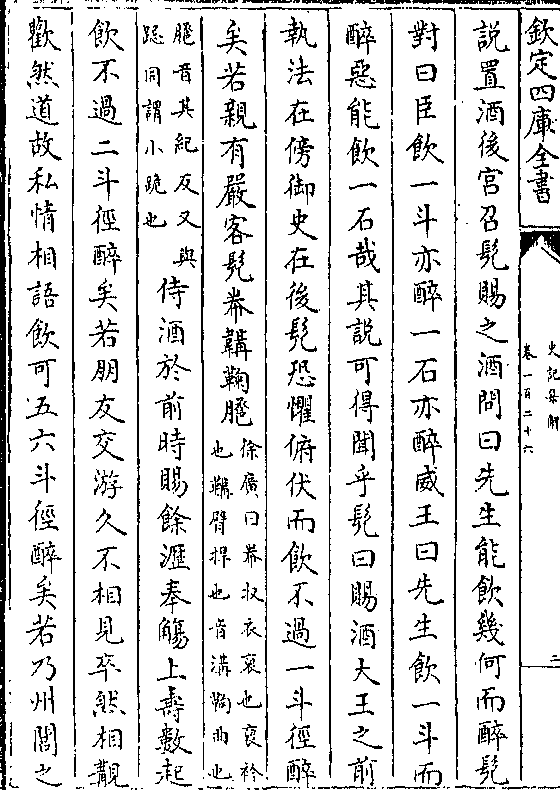 欽定四庫全書
史記集解
卷一百二十六
二
説置酒後宮召髡賜之酒問曰先生能飲幾何而醉髡
對曰臣飲一斗亦醉一石亦醉威王曰先生飲一斗而
醉惡能飲一石哉其說可得聞乎髡曰賜酒大王之前
執法在傍御史在後髡恐懼俯伏而飲不過一斗徑醉
矣若親有嚴客髡帣韝鞠䠆
徐廣曰帣收衣袖也袖衿
也韝臂捍也音溝鞠曲也
䠆音其紀反又與
跽同謂小跪也
侍酒於前時賜餘瀝奉觴上壽數起
飲不過二斗徑醉矣若朋友交游久不相見卒然相覩
歡然道故私情相語飲可五六斗徑醉矣若乃州閭之